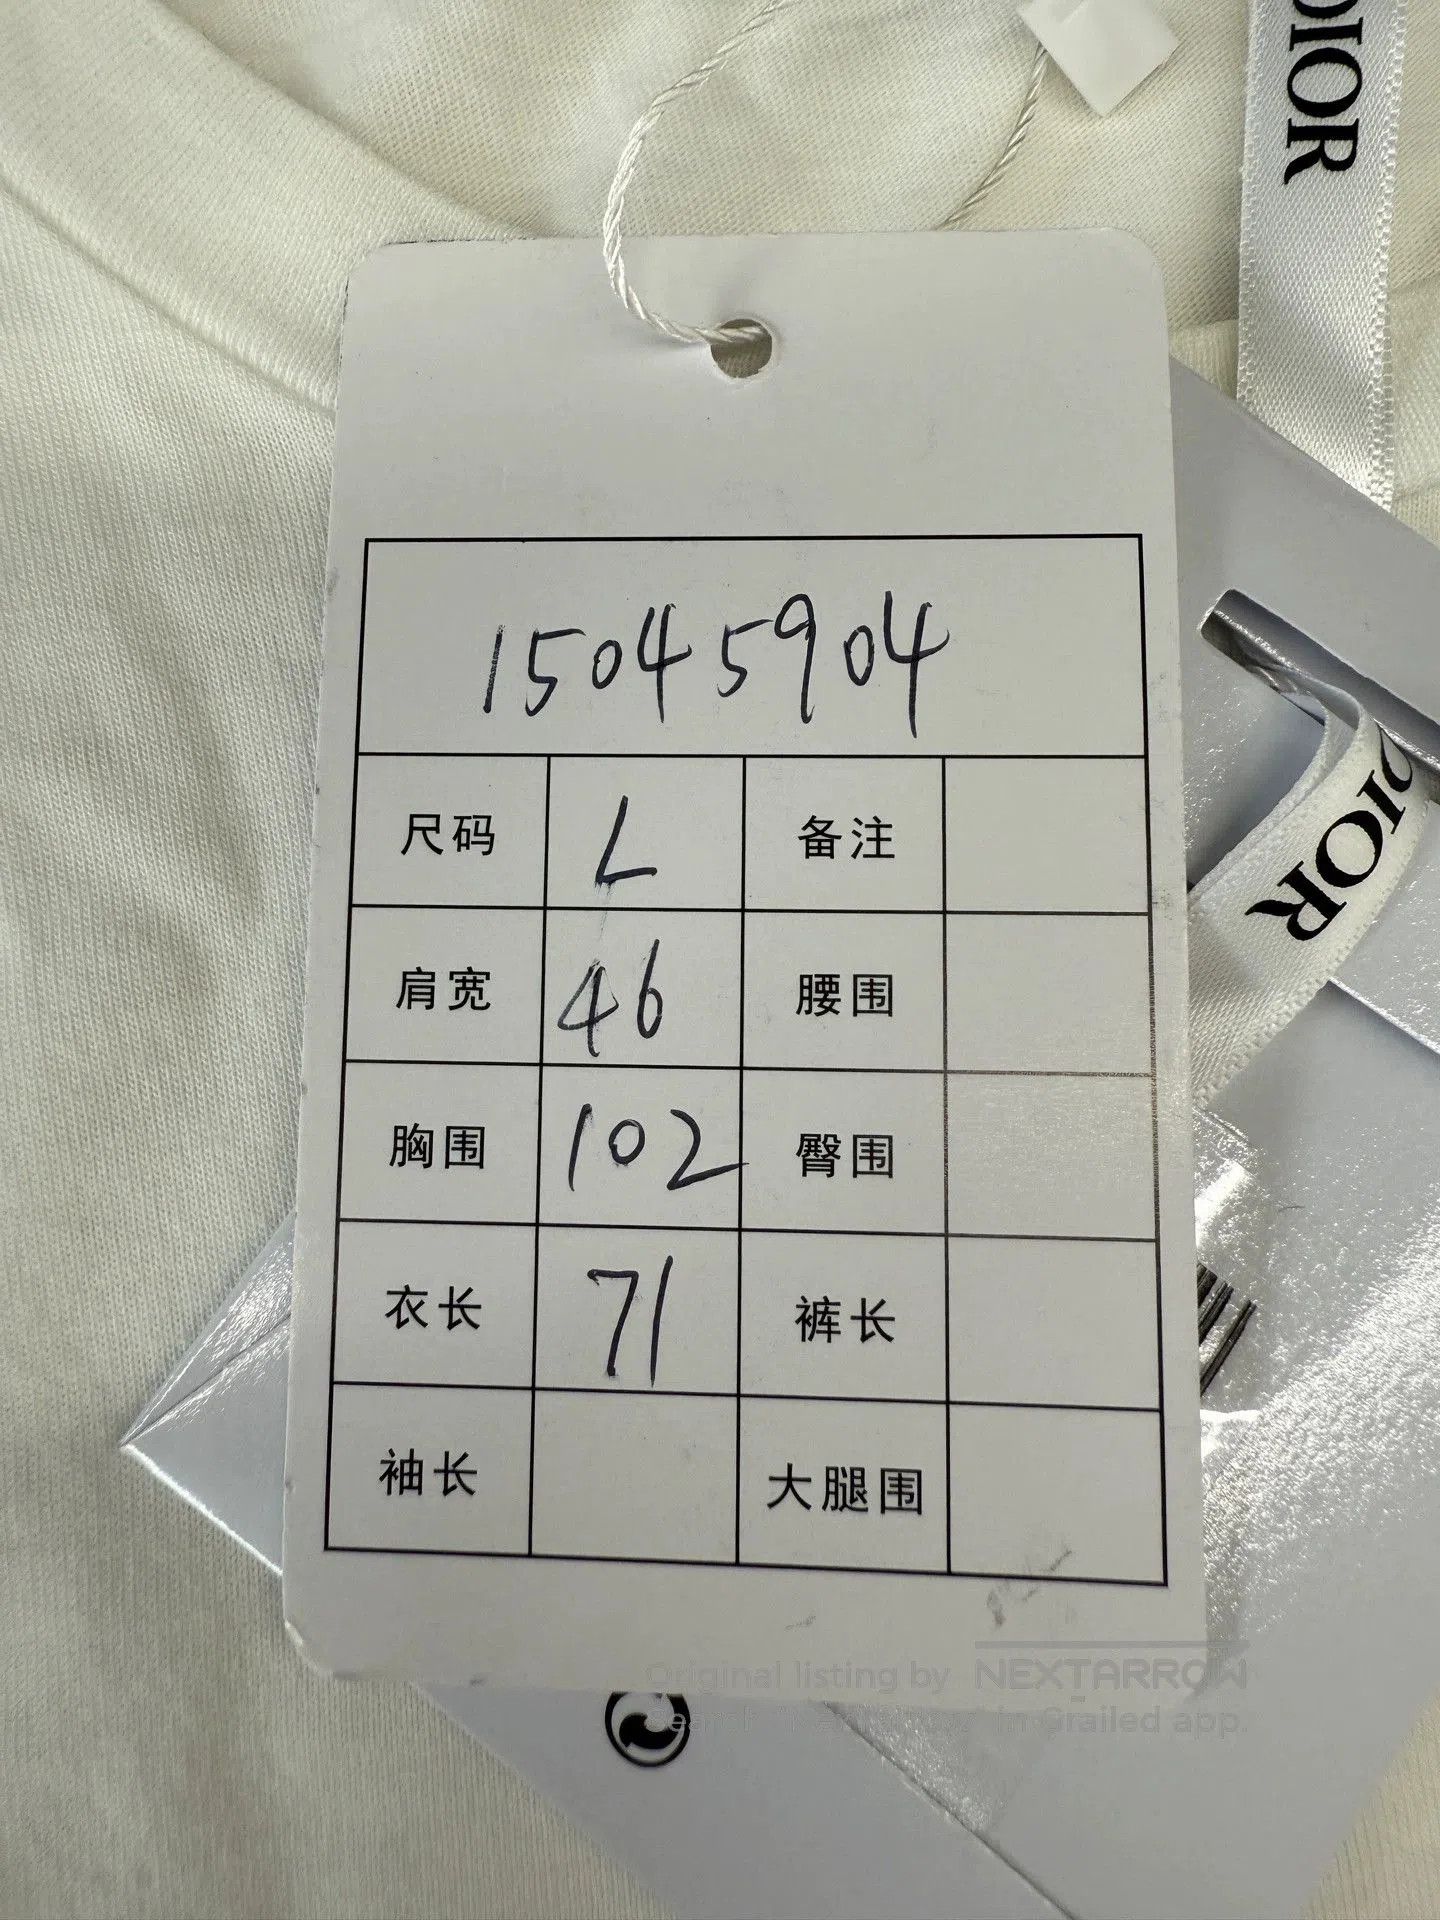 DIOR
15045904
尺码 L 备注
肩宽 46 腰围
胸围 102 臀围
衣长 71 裤长
袖长 大腿围
DIOR
Original listing by NEXTARROW
in Grailed app.